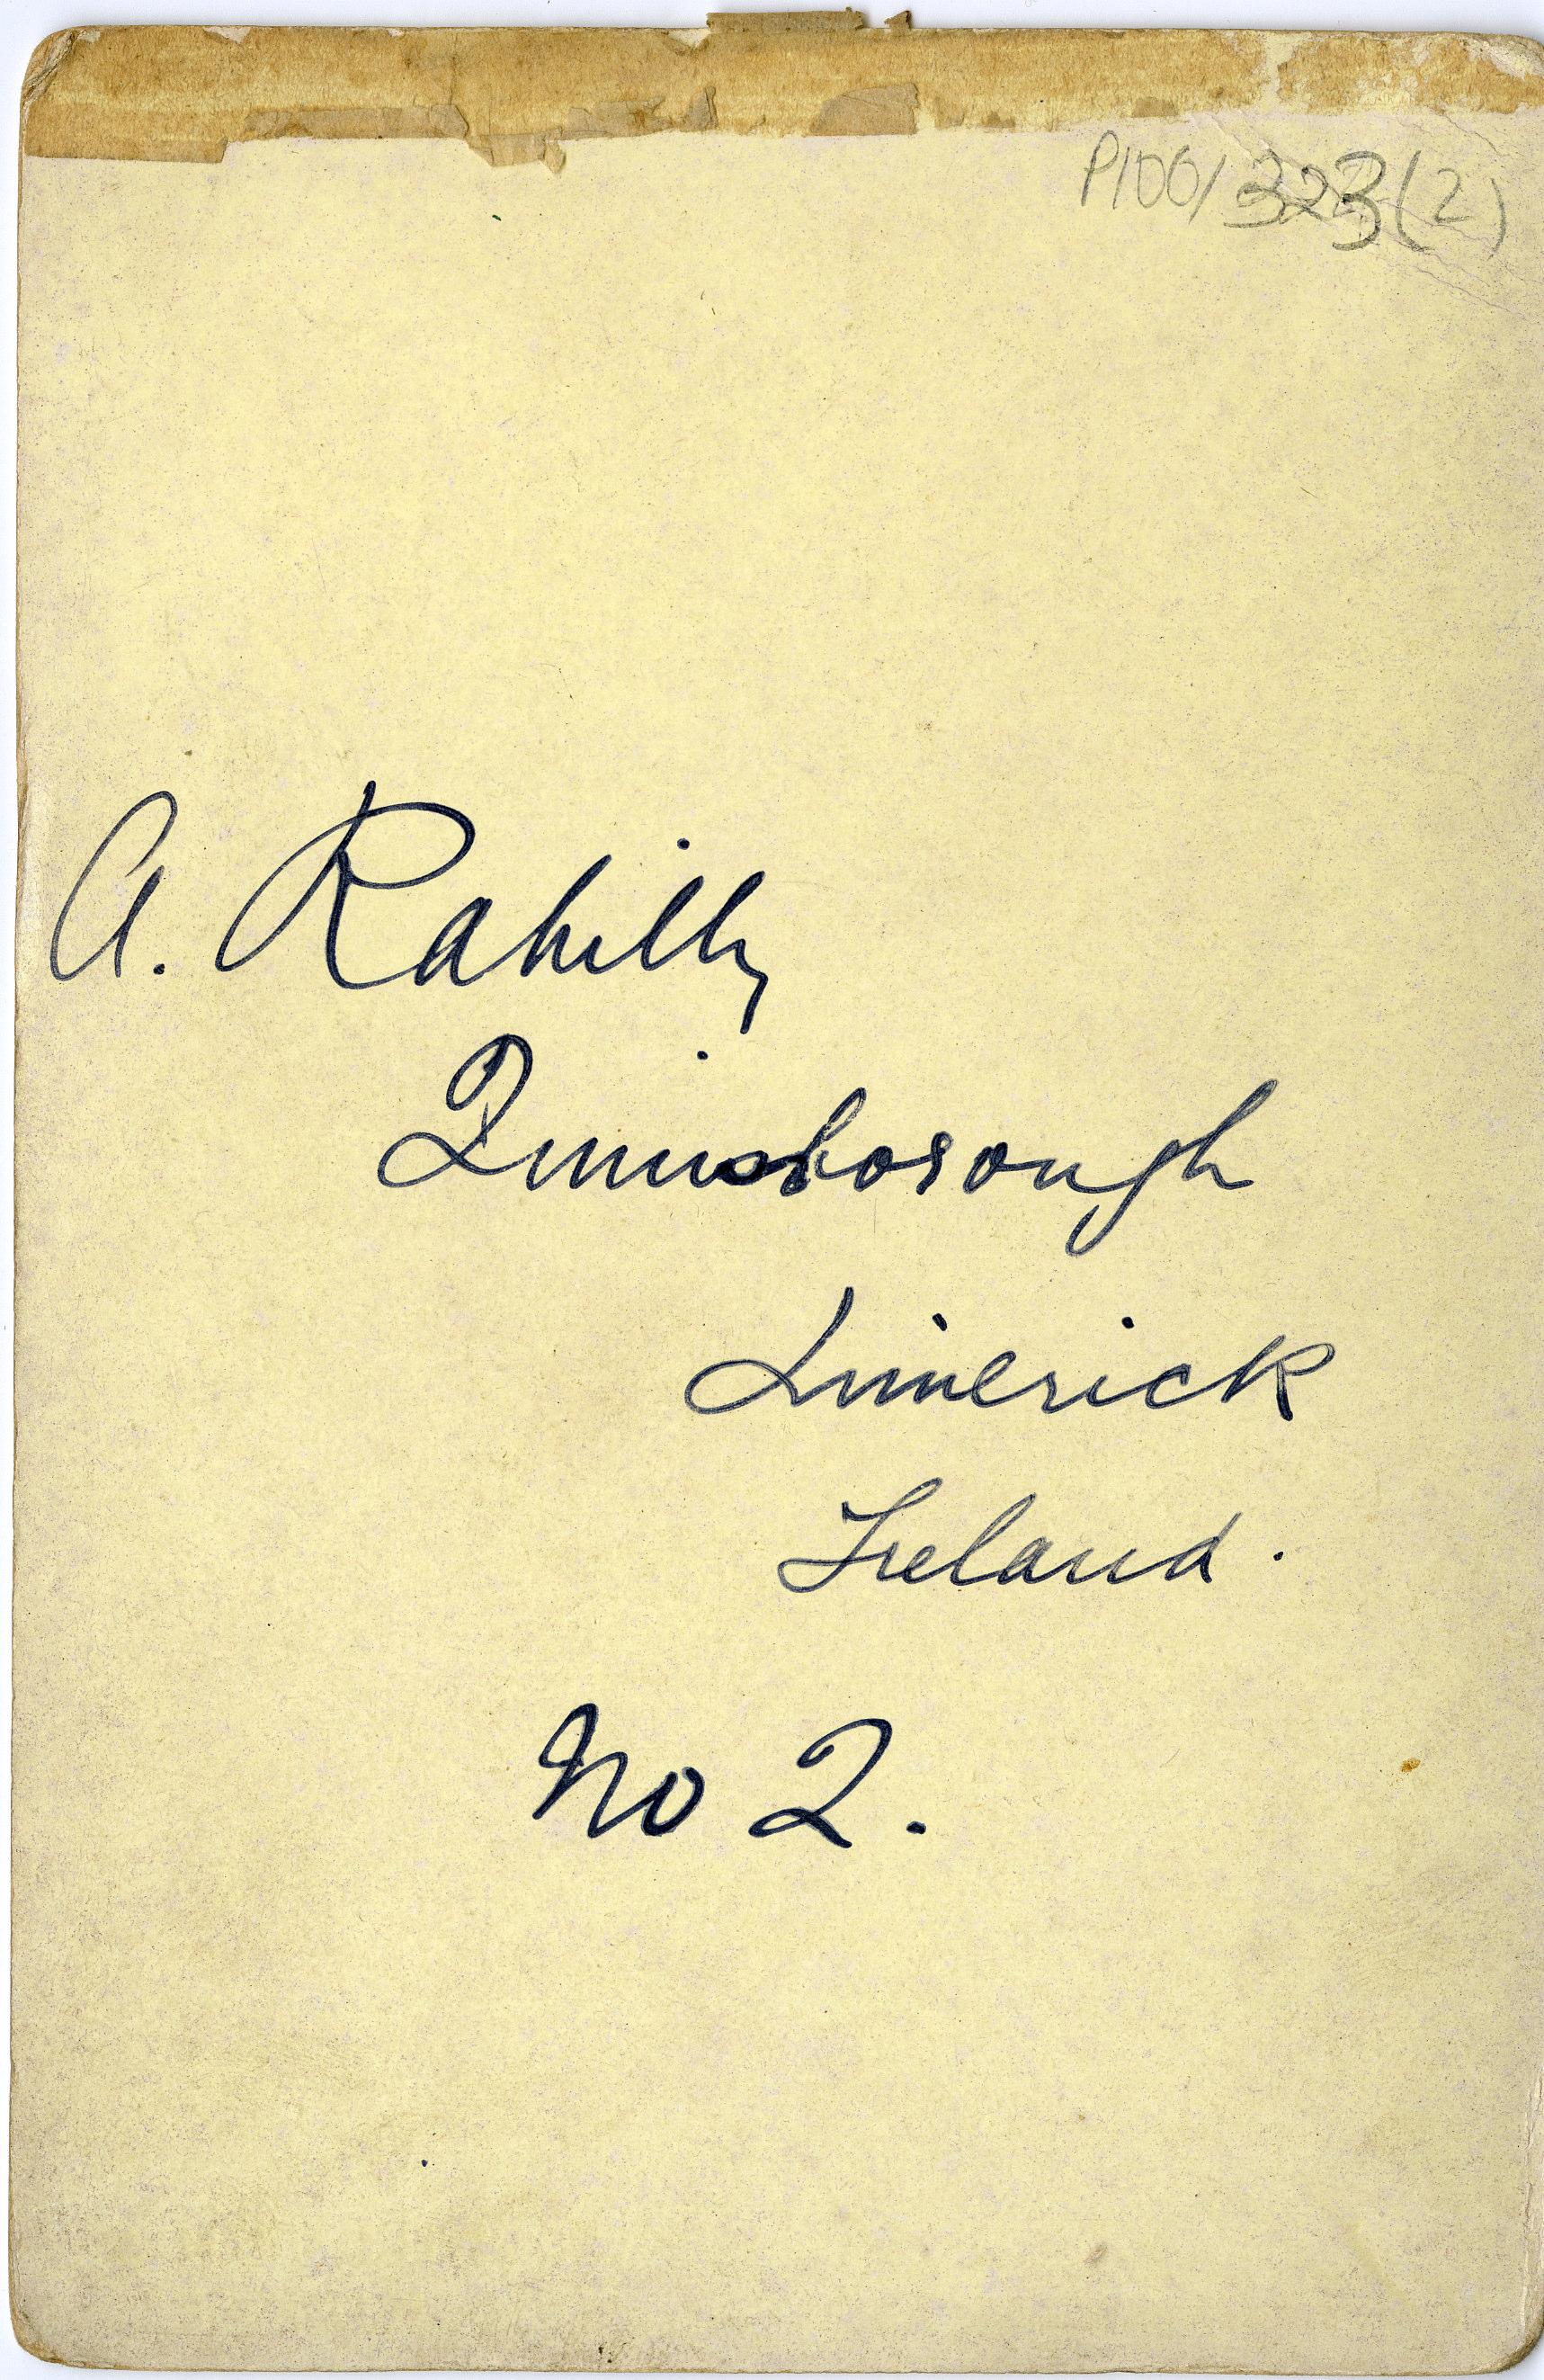 P106/323(2)
A. Rahilly
Quinsborough
Limerick
Ireland.
No 2.